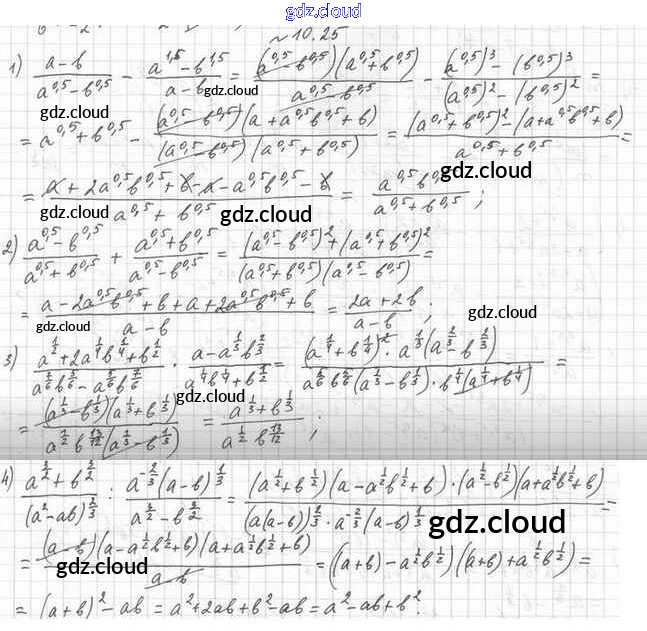 gdz.cloud
№ 10.25
1) (a-b)/(a^0,5-b^0,5) - (a^1,5-b^1,5)/(a-b) = ((a^0,5-b^0,5)(a^0,5+b^0,5))/(a^0,5-b^0,5) - ((a^0,5)^3-(b^0,5)^3)/((a^0,5)^2-(b^0,5)^2) =
gdz.cloud gdz.cloud gdz.cloud
= a^0,5+b^0,5 - ((a^0,5-b^0,5)(a+a^0,5b^0,5+b))/((a^0,5-b^0,5)(a^0,5+b^0,5)) = ((a^0,5+b^0,5)^2-(a+a^0,5b^0,5+b))/(a^0,5+b^0,5) =
gdz.cloud gdz.cloud
= (a+2a^0,5b^0,5+b-a-a^0,5b^0,5-b)/(a^0,5+b^0,5) = (a^0,5b^0,5)/(a^0,5+b^0,5) ;
gdz.cloud gdz.cloud gdz.cloud
2) (a^0,5-b^0,5)/(a^0,5+b^0,5) + (a^0,5+b^0,5)/(a^0,5-b^0,5) = ((a^0,5-b^0,5)^2+(a^0,5+b^0,5)^2)/((a^0,5+b^0,5)(a^0,5-b^0,5)) =
gdz.cloud gdz.cloud
= (a-2a^0,5b^0,5+b+a+2a^0,5b^0,5+b)/(a-b) = (2a+2b)/(a-b) ;
gdz.cloud gdz.cloud gdz.cloud
3) (a^1/2+2a^1/4b^1/4+b^1/2)/(a^7/6b^5/6-a^5/6b^7/6) · (a-a^1/3b^2/3)/(a^1/4b^1/4+b^1/2) = ((a^1/4+b^1/4)^2·a^1/3(a^2/3-b^2/3))/(a^5/6b^5/6(a^1/3-b^1/3)·b^1/4(a^1/4+b^1/4)) =
gdz.cloud gdz.cloud
= ((a^1/3-b^1/3)(a^1/3+b^1/3))/(a^1/2b^13/12(a^1/3-b^1/3)) = (a^1/3+b^1/3)/(a^1/2b^13/12) ;
gdz.cloud gdz.cloud
4) (a^3/2+b^3/2)/((a^2-ab)^2/3) : (a^-2/3(a-b)^1/3)/(a^3/2-b^3/2) = ((a^1/2+b^1/2)(a-a^1/2b^1/2+b)·(a^1/2-b^1/2)(a+a^1/2b^1/2+b))/((a(a-b))^2/3·a^-2/3(a-b)^1/3) =
gdz.cloud gdz.cloud
= ((a-b)(a-a^1/2b^1/2+b)(a+a^1/2b^1/2+b))/(a-b) = ((a+b)-a^1/2b^1/2)((a+b)+a^1/2b^1/2) =
gdz.cloud gdz.cloud
= (a+b)^2-ab = a^2+2ab+b^2-ab = a^2-ab+b^2.